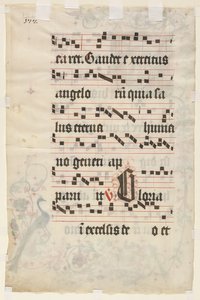 caret. Gaudet e xercitus
angelo rū quia sa
lus eterna huma
no generi ap
paru it Gloria
ī excelsis de o et